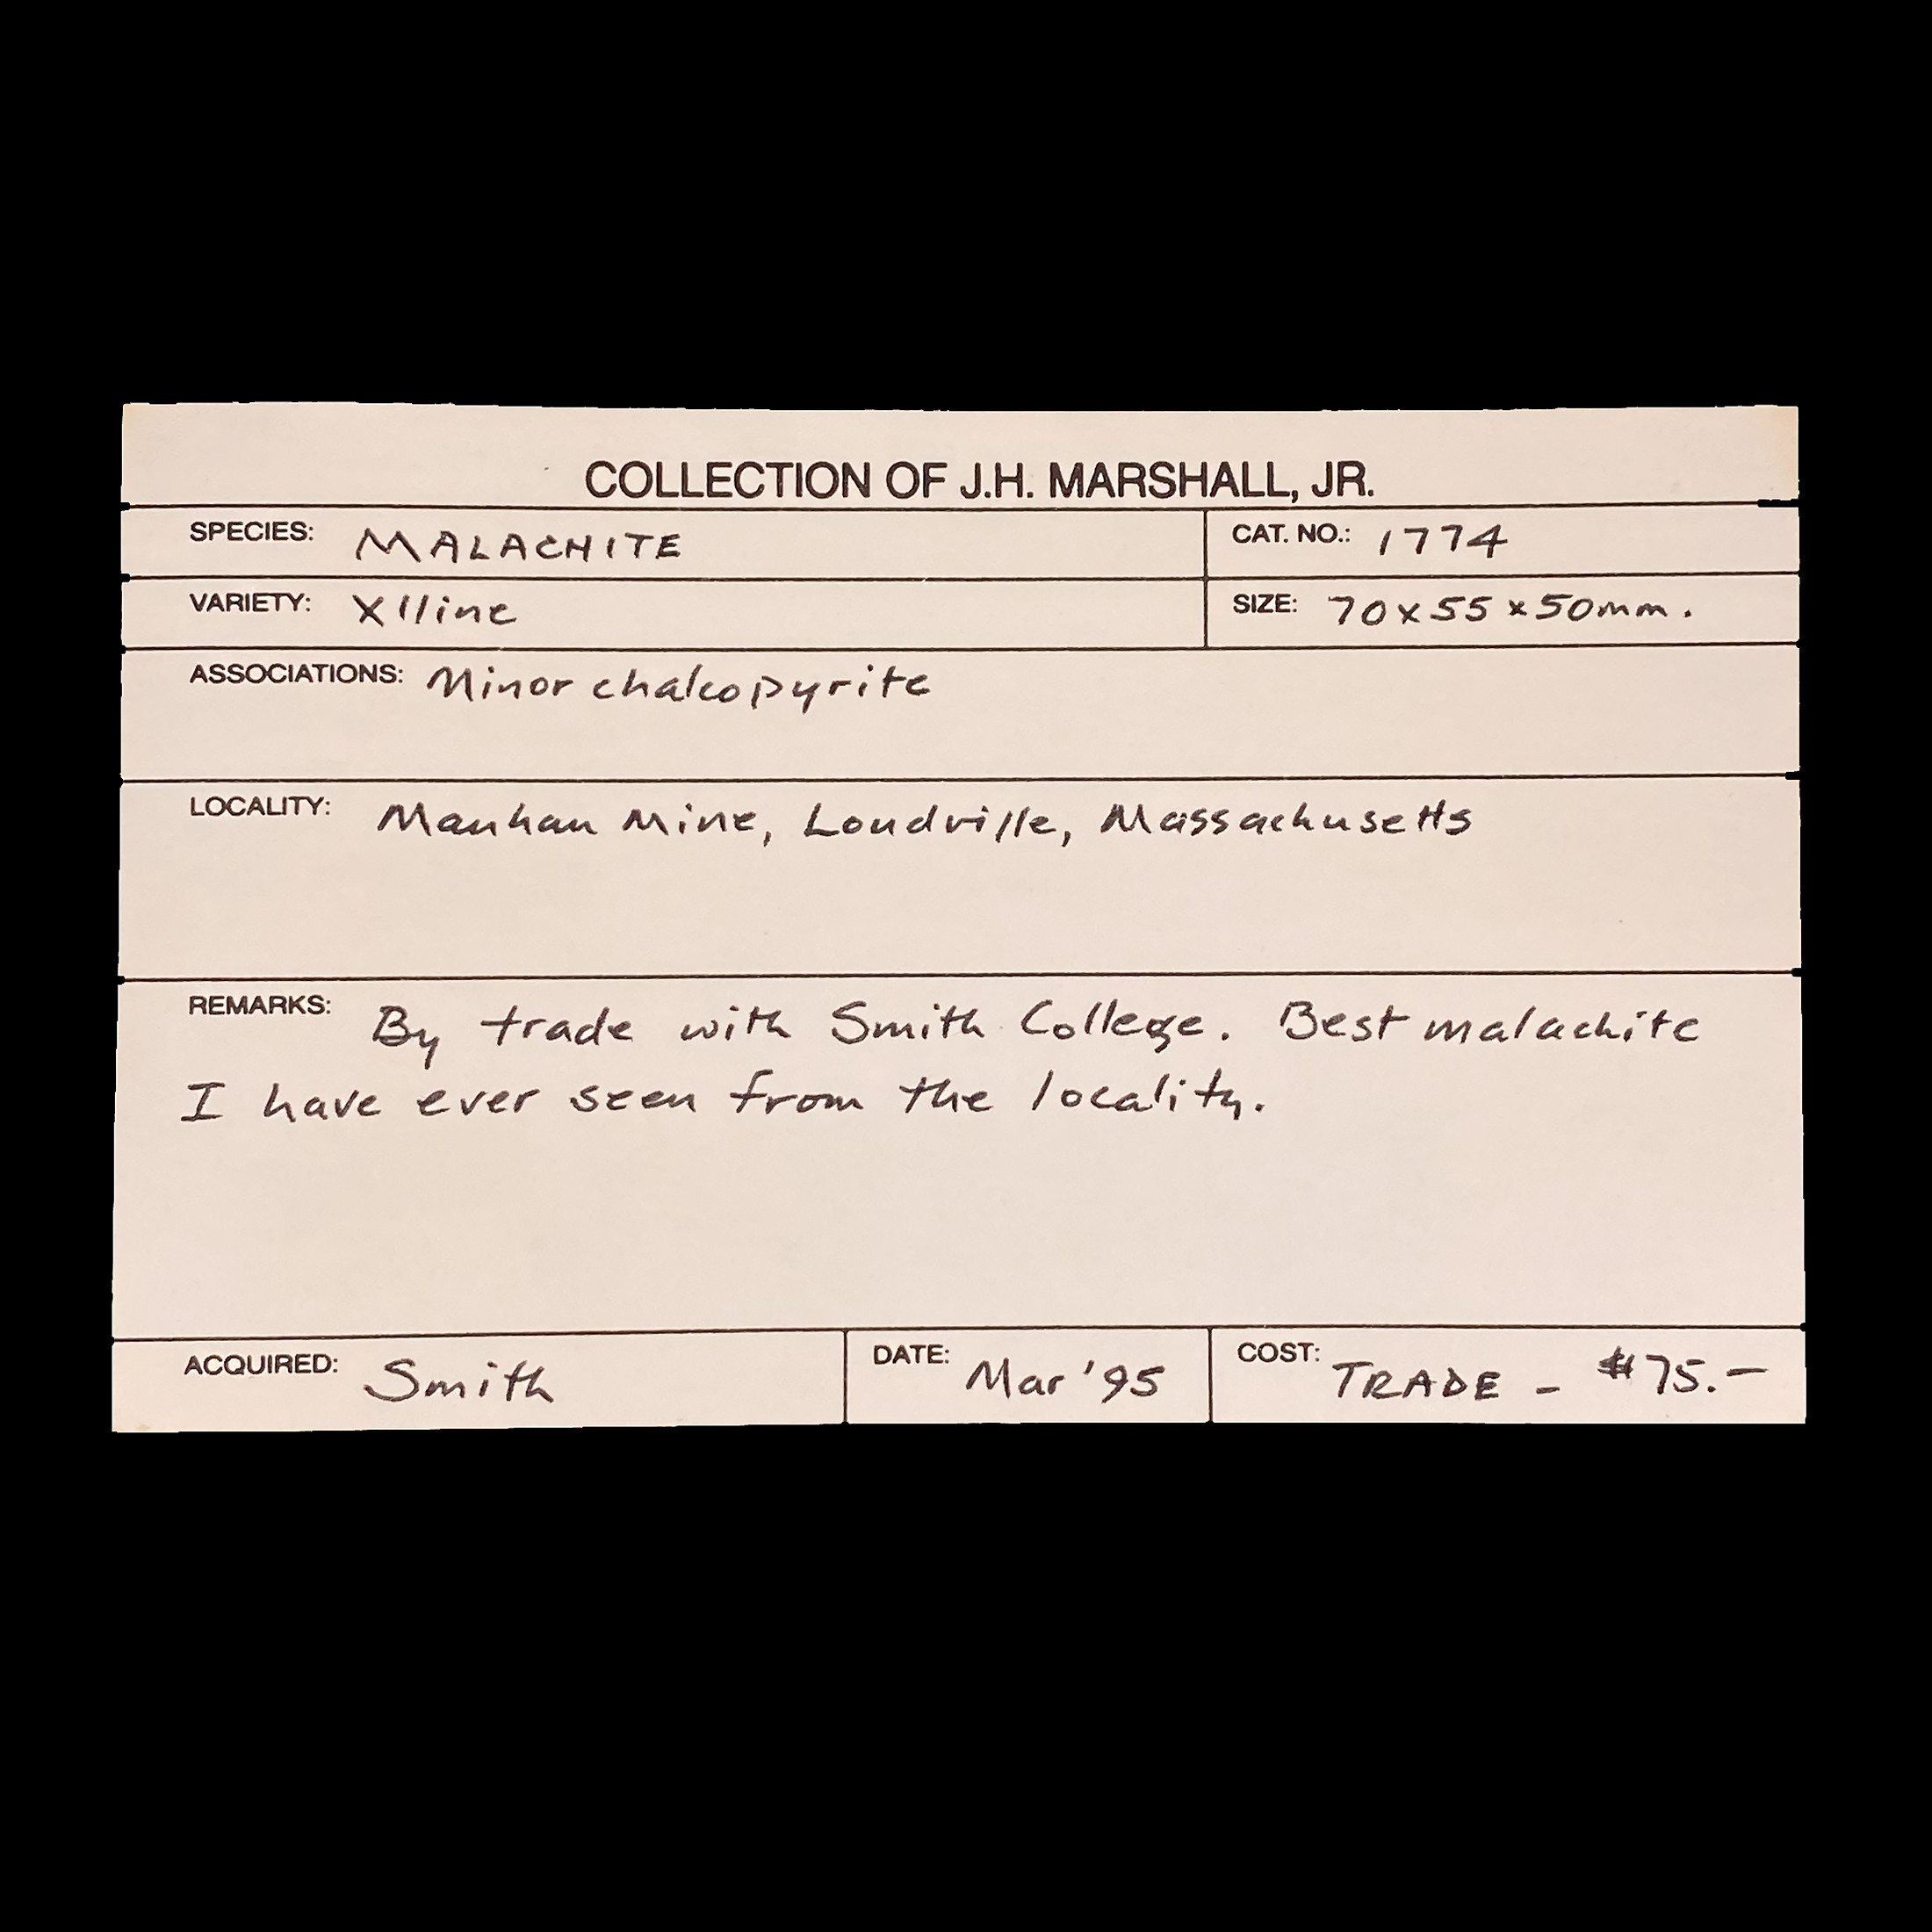 COLLECTION OF J.H. MARSHALL, JR.
SPECIES: MALACHITE CAT. NO.: 1774
VARIETY: Xlline SIZE: 70 x 55 x 50mm.
ASSOCIATIONS: Minor chalcopyrite
LOCALITY: Manhan Mine, Loudville, Massachusetts
REMARKS: By trade with Smith College. Best malachite
I have ever seen from the locality.
ACQUIRED: Smith DATE: Mar '95 COST: TRADE - $75.-